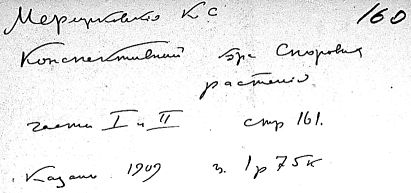 Мережковский К С 160
Конспективный курс Споровых
растений
части I и II стр 161.
Казань 1909 ц. 1 р 75 к